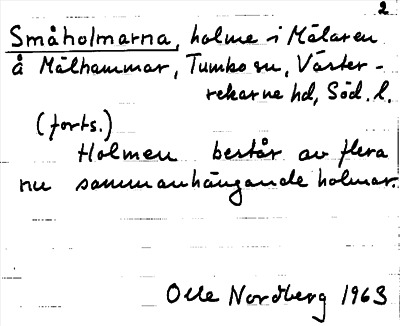 2
Småholmarna, holme i Mälaren
å Mälhammar, Tumbo sn, Väster-
rekarne hd, Söd. l.
(forts.)
Holmen består av flera
nu sammanhängande holmar.
Olle Nordberg 1963